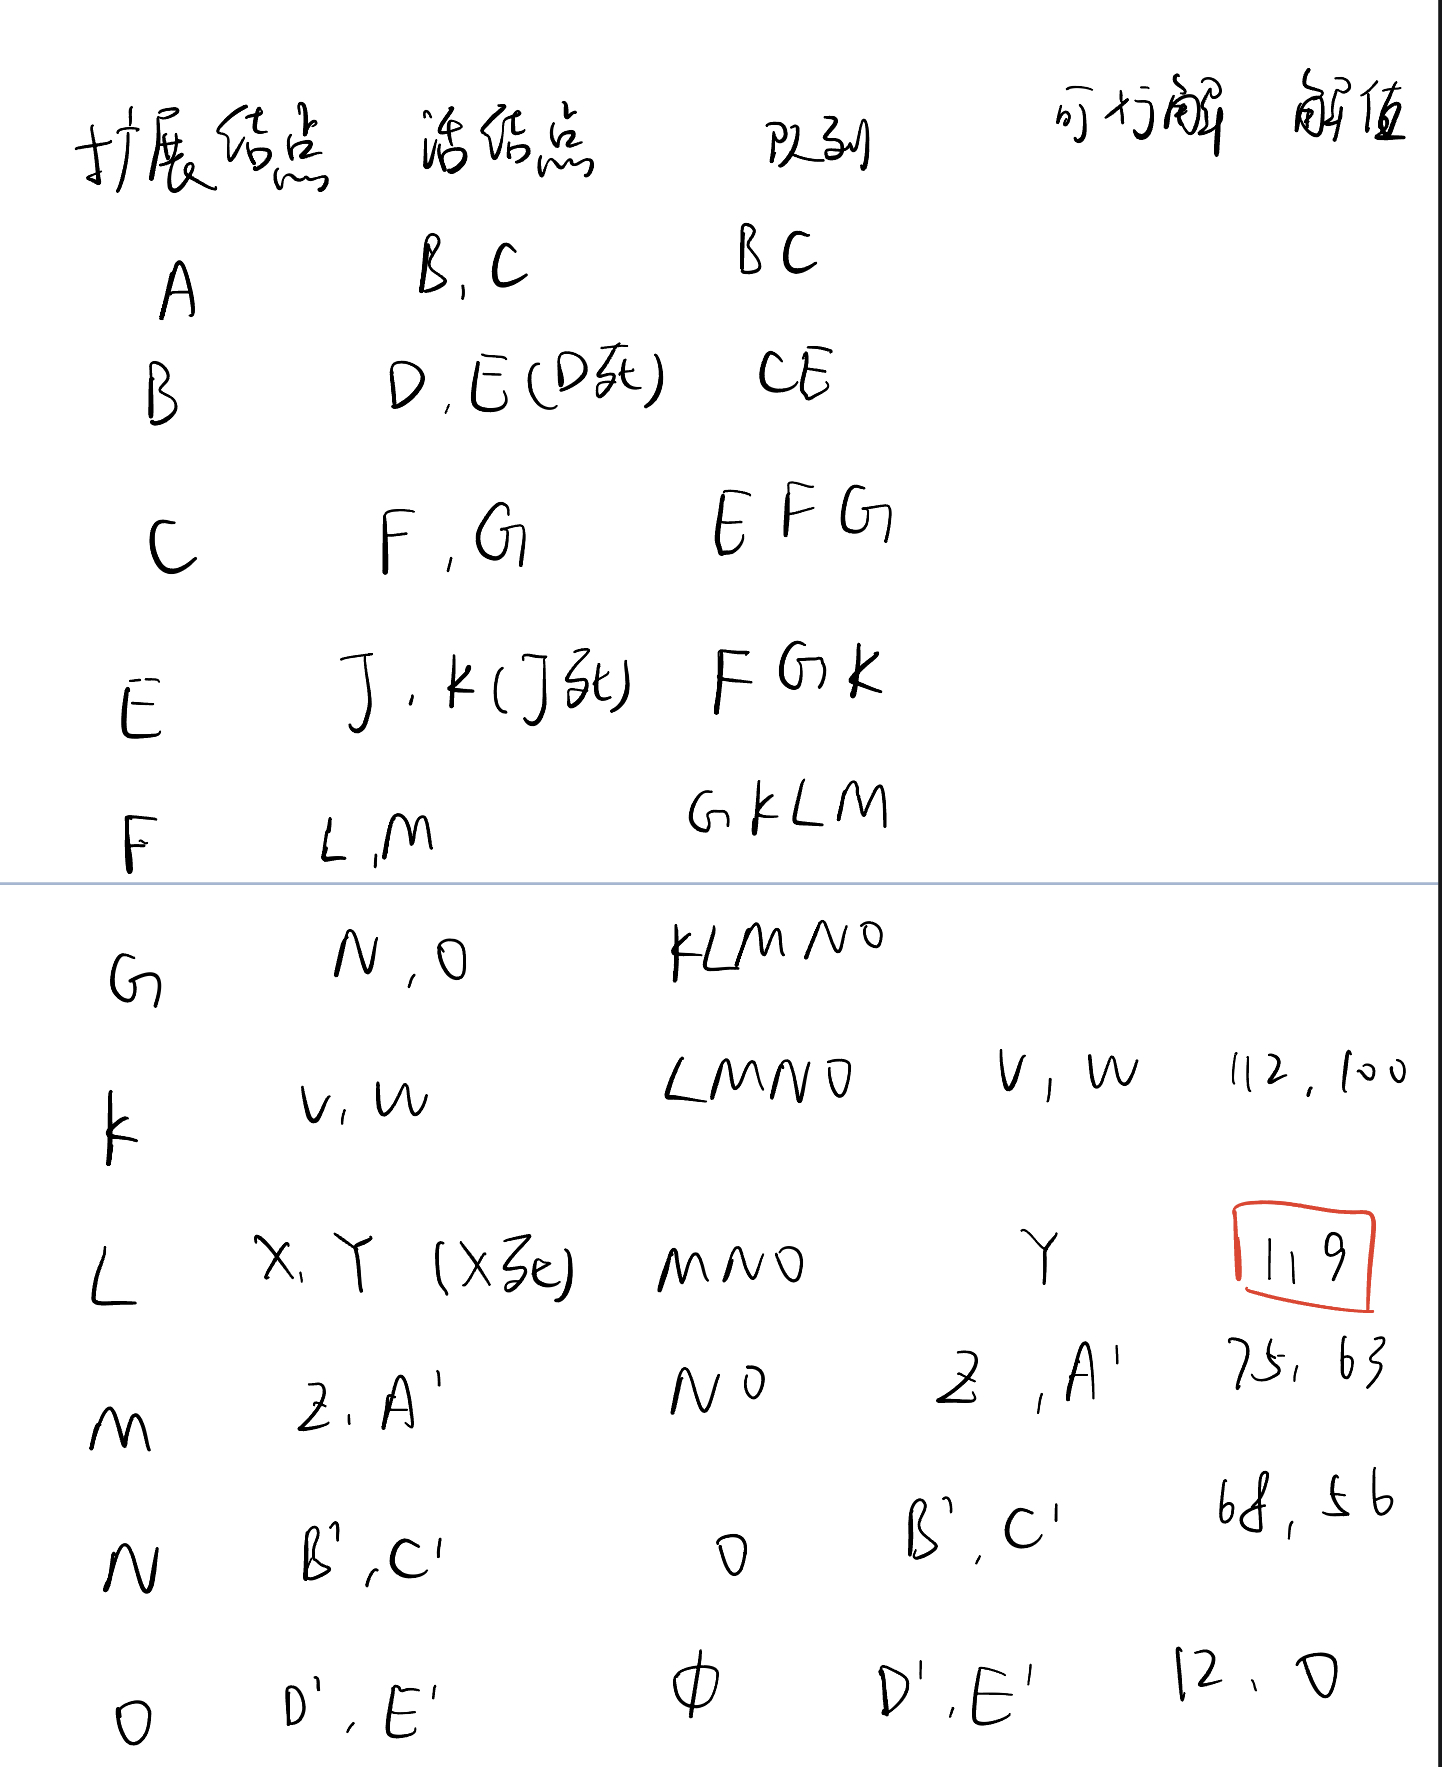 扩展结点 活结点 队列 可行解 解值
A B, C B C
B D, E (D死) C E
C F, G E F G
E J, K (J死) F G K
F L, M G K L M
G N, O K L M N O
K V, W L M N O V, W 112, 100
L X, Y (X死) M N O Y 119
M Z, A' N O Z, A' 75, 63
N B', C' O B', C' 68, 56
O D', E' Φ D', E' 12, 0